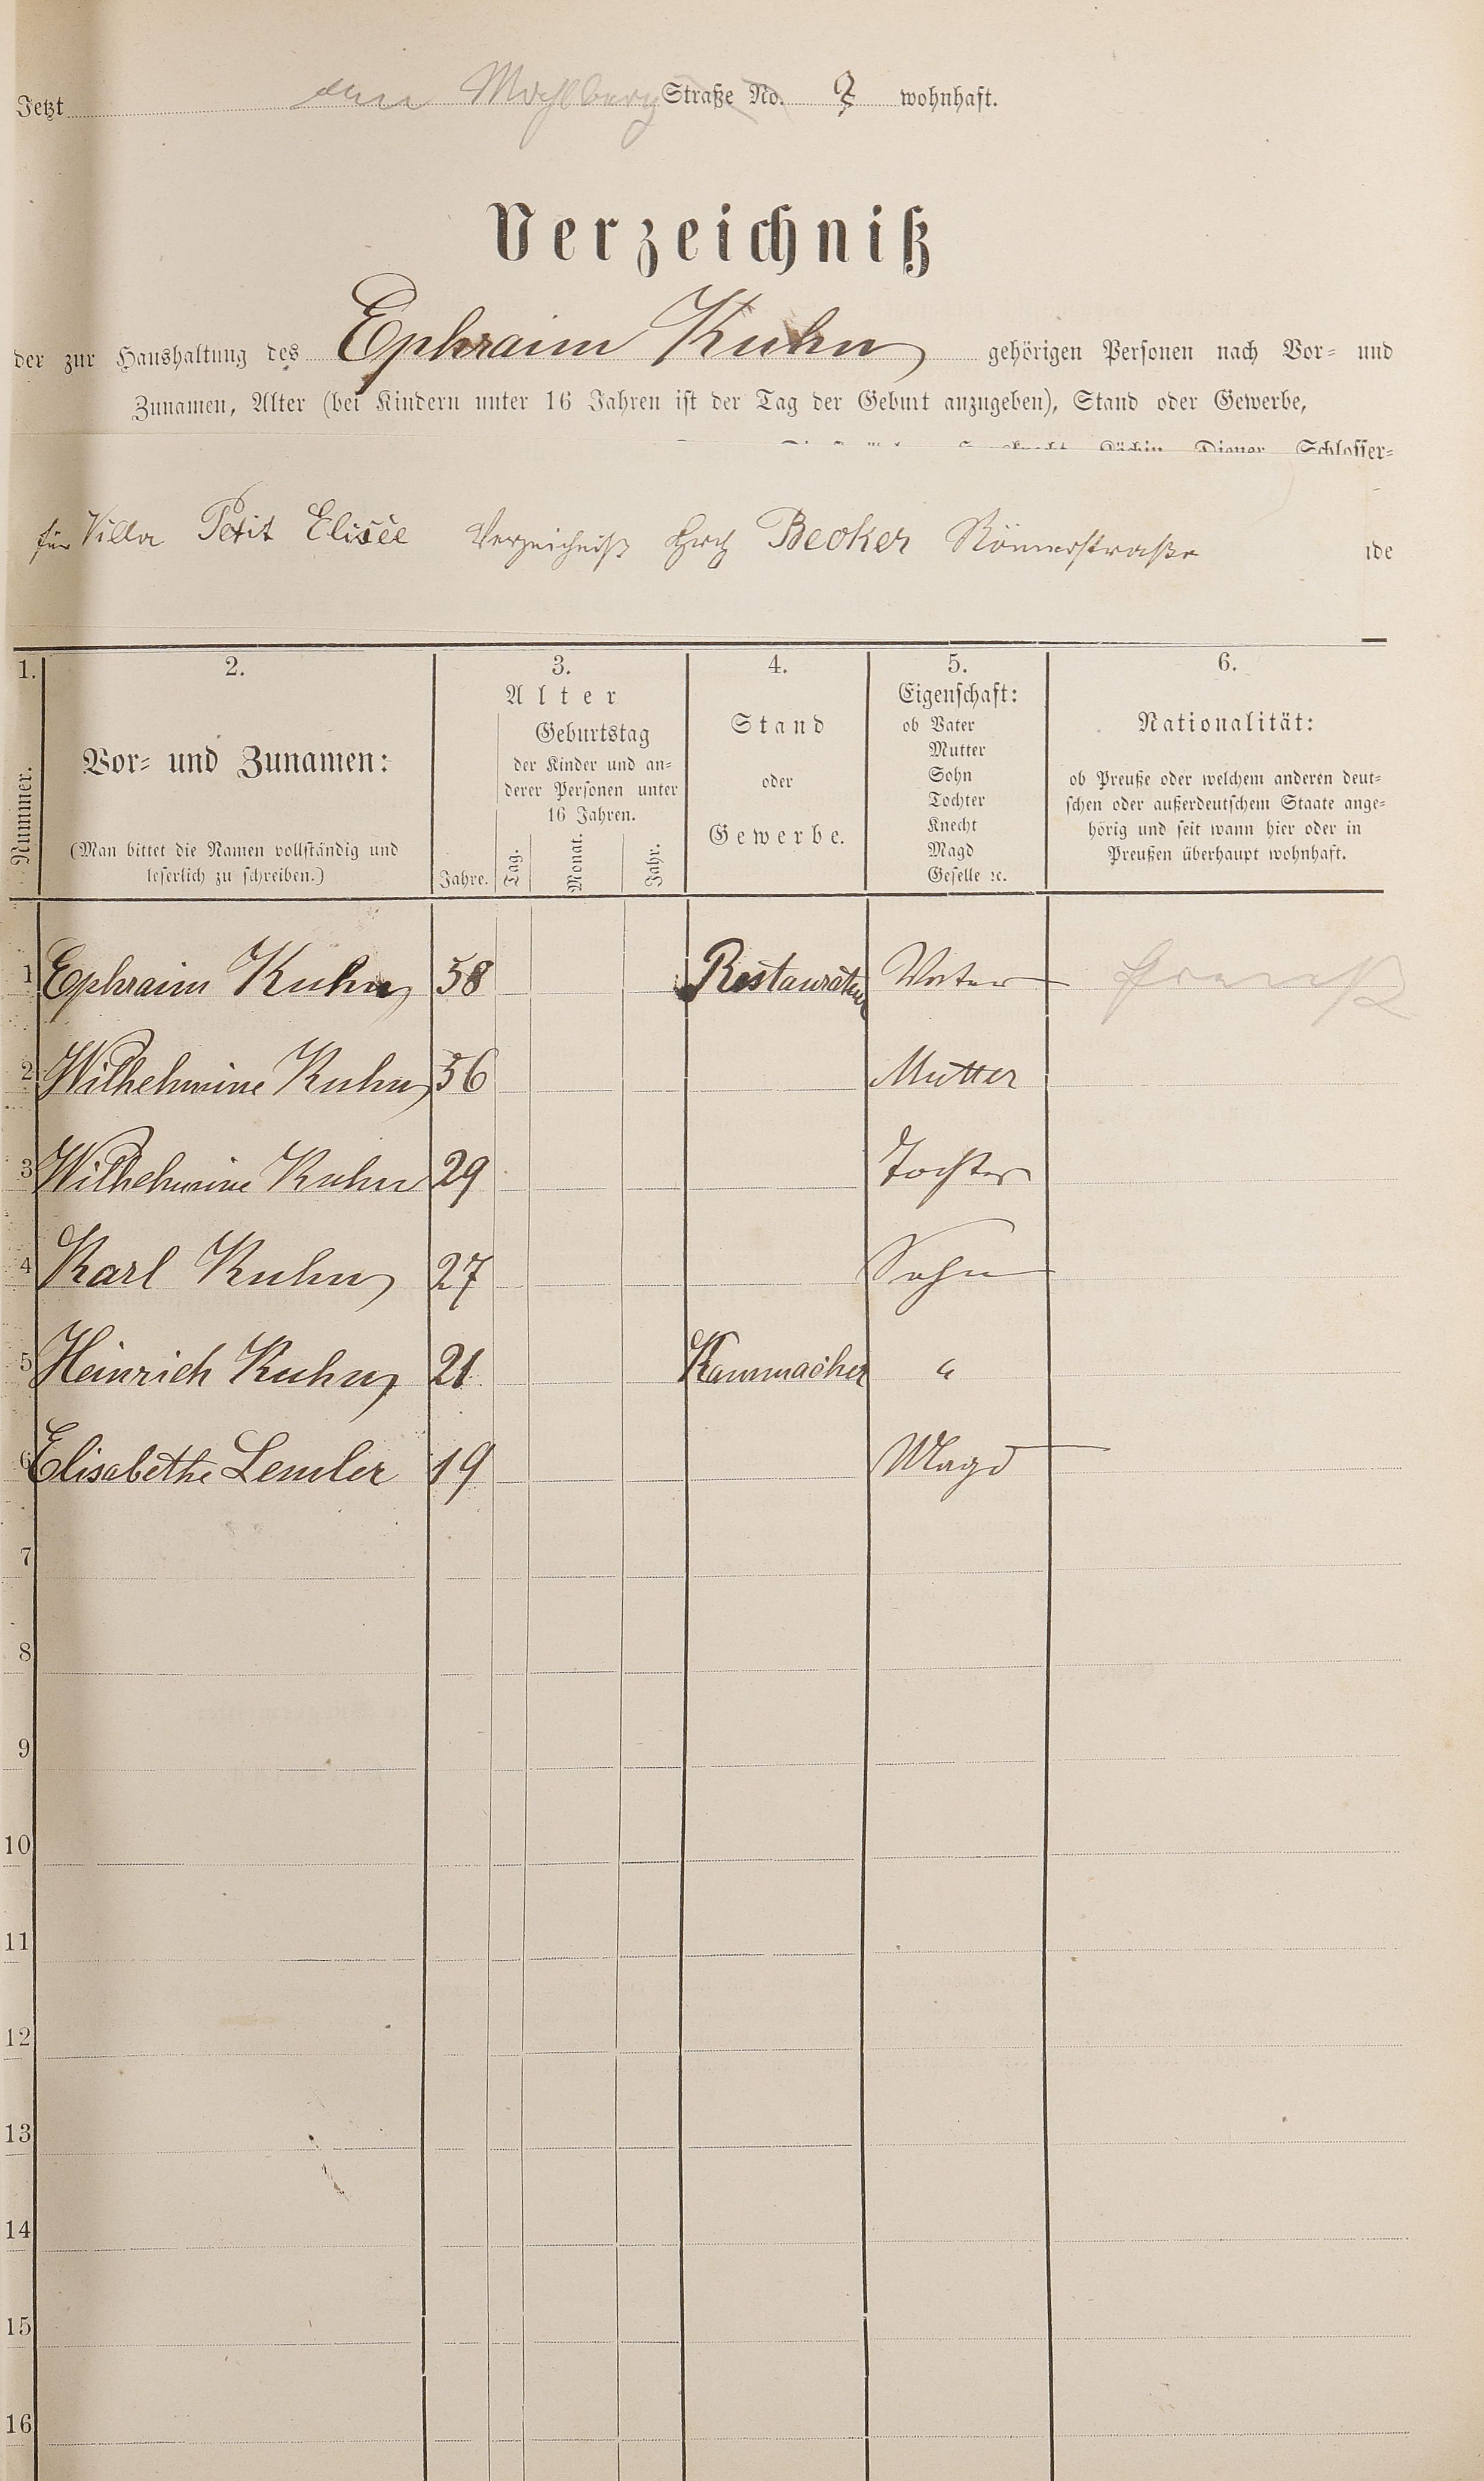 Jetzt am Mühlberg Straße No. 2 wohnhaft.
Verzeichniß
der zur Haushaltung des Ephraim Kuhn gehörigen Personen nach Vor= und
Zunamen, Alter (bei Kindern unter 16 Jahren ist der Tag der Geburt anzugeben), Stand oder Gewerbe,
Köchin Diener Schlosser=
für Villa Petit Elisèe Verzeichniß Hrch Becker Römerstraße
1. 2. 3. 4. 5. 6.
Nummer.
Vor= und Zunamen:
(Man bittet die Namen vollständig und
leserlich zu schreiben.)
Alter
Geburtstag
der Kinder und an=
derer Personen unter
16 Jahren.
Jahre. Tag. Monat. Jahr.
Stand
oder
Gewerbe.
Eigenschaft:
ob Vater
Mutter
Sohn
Tochter
Knecht
Magd
Geselle ꝛc.
Nationalität:
ob Preuße oder welchem anderen deut=
schen oder außerdeutschem Staate ange=
hörig und seit wann hier oder in
Preußen überhaupt wohnhaft.
1 Ephraim Kuhn 58 Restaurateur Vater Preuß
2 Wilhelmine Kuhn 56 Mutter
3 Wilhelmine Kuhn 29 Tochter
4 Karl Kuhn 27 Sohn
5 Heinrich Kuhn 21 Kammacher "
6 Elisabethe Lemler 19 Magd
7
8
9
10
11
12
13
14
15
16